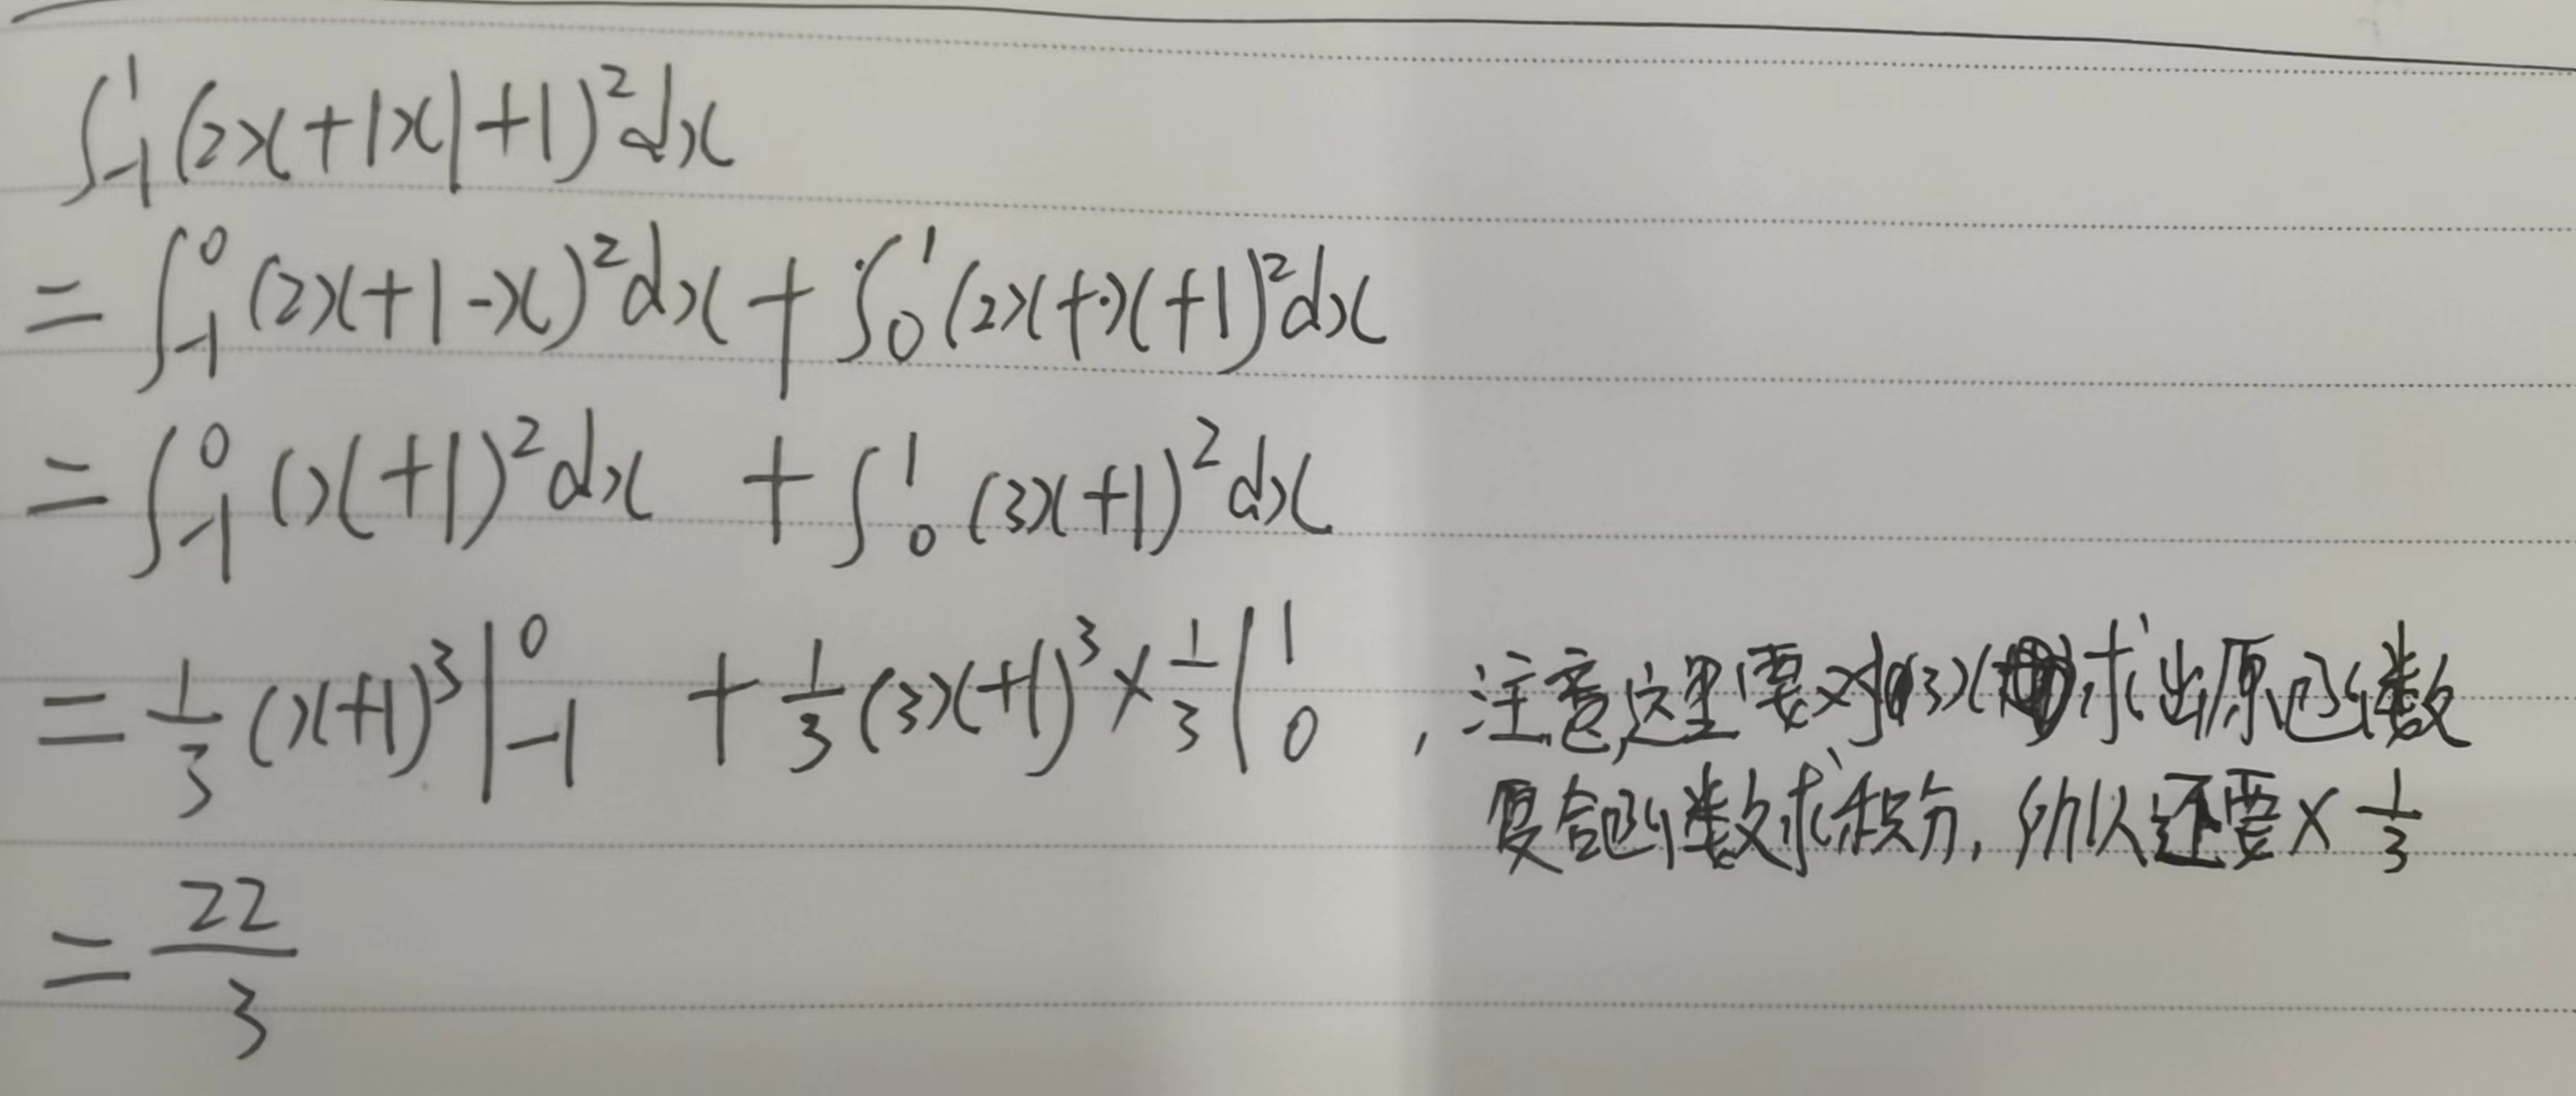 ∫₋₁¹ (2x+|x|+1)²dx
= ∫₋₁⁰ (2x+1-x)²dx + ∫₀¹ (2x+x+1)²dx
= ∫₋₁⁰ (x+1)²dx + ∫₀¹ (3x+1)²dx
= 1/3 (x+1)³ |₋₁⁰ + 1/3 (3x+1)³ × 1/3 |₀¹ , 注意这里要对(3x 求出原函数
复合函数求积分, 所以还要 × 1/3
= 22/3